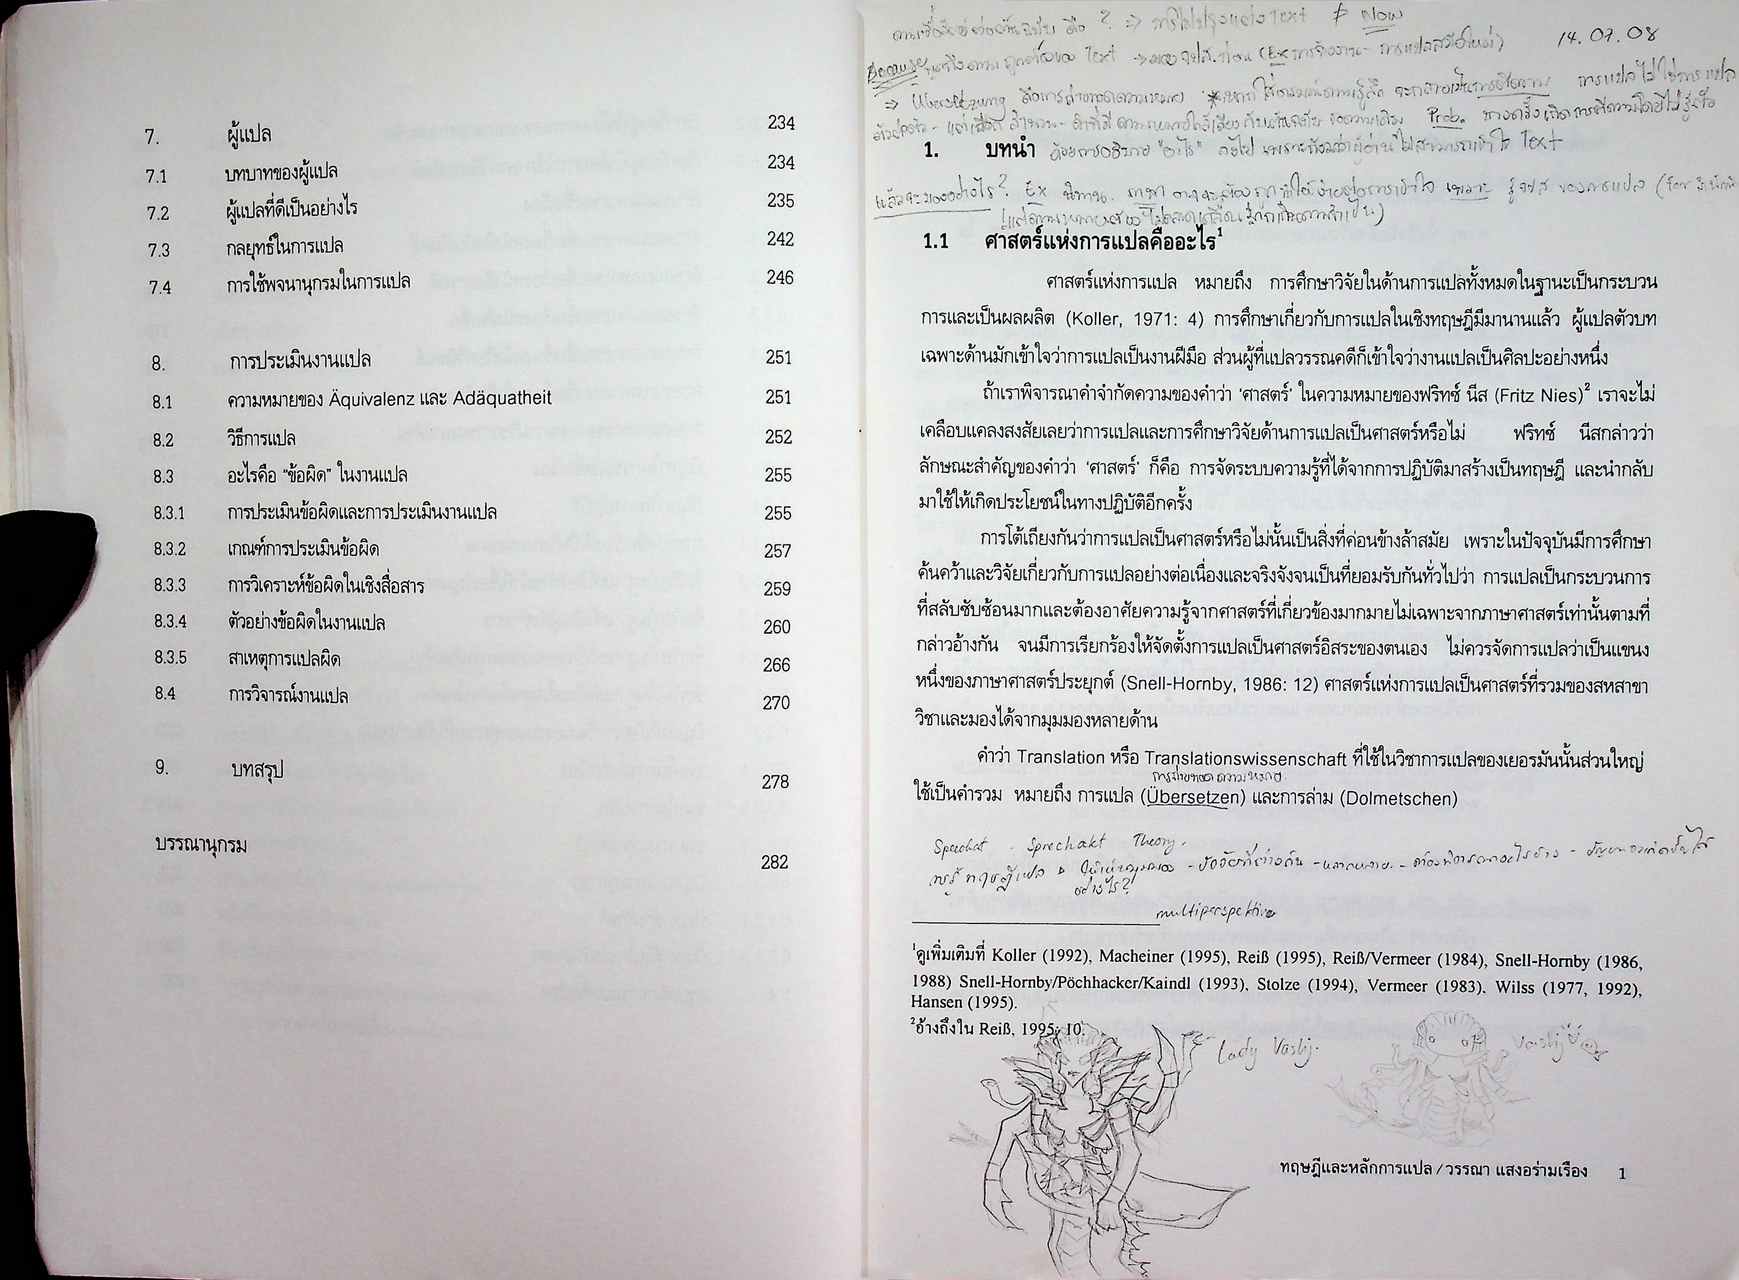 7. ผู้แปล 234
7.1 บทบาทของผู้แปล 234
7.2 ผู้แปลที่ดีเป็นอย่างไร 235
7.3 กลยุทธ์ในการแปล 242
7.4 การใช้พจนานุกรมในการแปล 246
8. การประเมินงานแปล 251
8.1 ความหมายของ Äquivalenz และ Adäquatheit 251
8.2 วิธีการแปล 252
8.3 อะไรคือ "ข้อผิด" ในงานแปล 255
8.3.1 การประเมินข้อผิดและการประเมินงานแปล 255
8.3.2 เกณฑ์การประเมินข้อผิด 257
8.3.3 การวิเคราะห์ข้อผิดในเชิงสื่อสาร 259
8.3.4 ตัวอย่างข้อผิดในงานแปล 260
8.3.5 สาเหตุการแปลผิด 266
8.4 การวิจารณ์งานแปล 270
9. บทสรุป 278
บรรณานุกรม 282
Text ≠ Now
14.07.08
Because Text
⇒ Übersetzung คือการถ่ายทอดความหมาย
Prob.
1. บทนำ ด้วยการอธิบาย "อะไร" Text
แล้วจะมองอย่างไร? Ex นิทาน
1.1 ศาสตร์แห่งการแปลคืออะไร¹
ศาสตร์แห่งการแปล หมายถึง การศึกษาวิจัยในด้านการแปลทั้งหมดในฐานะเป็นกระบวน
การและเป็นผลผลิต (Koller, 1971: 4) การศึกษาเกี่ยวกับการแปลในเชิงทฤษฎีมีมานานแล้ว ผู้แปลตัวบท
เฉพาะด้านมักเข้าใจว่าการแปลเป็นงานฝีมือ ส่วนผู้ที่แปลวรรณคดีก็เข้าใจว่างานแปลเป็นศิลปะอย่างหนึ่ง
ถ้าเราพิจารณาคำจำกัดความของคำว่า 'ศาสตร์' ในความหมายของฟริทซ์ นีส (Fritz Nies)² เราจะไม่
เคลือบแคลงสงสัยเลยว่าการแปลและการศึกษาวิจัยด้านการแปลเป็นศาสตร์หรือไม่ ฟริทซ์ นีสกล่าวว่า
ลักษณะสำคัญของคำว่า 'ศาสตร์' ก็คือ การจัดระบบความรู้ที่ได้จากการปฏิบัติมาสร้างเป็นทฤษฎี และนำกลับ
มาใช้ให้เกิดประโยชน์ในทางปฏิบัติอีกครั้ง
การโต้เถียงกันว่าการแปลเป็นศาสตร์หรือไม่นั้นเป็นสิ่งที่ค่อนข้างล้าสมัย เพราะในปัจจุบันมีการศึกษา
ค้นคว้าและวิจัยเกี่ยวกับการแปลอย่างต่อเนื่องและจริงจังจนเป็นที่ยอมรับกันทั่วไปว่า การแปลเป็นกระบวนการ
ที่สลับซับซ้อนมากและต้องอาศัยความรู้จากศาสตร์ที่เกี่ยวข้องมากมายไม่เฉพาะจากภาษาศาสตร์เท่านั้นตามที่
กล่าวอ้างกัน จนมีการเรียกร้องให้จัดตั้งการแปลเป็นศาสตร์อิสระของตนเอง ไม่ควรจัดการแปลว่าเป็นแขนง
หนึ่งของภาษาศาสตร์ประยุกต์ (Snell-Hornby, 1986: 12) ศาสตร์แห่งการแปลเป็นศาสตร์ที่รวมของสหสาขา
วิชาและมองได้จากมุมมองหลายด้าน
คำว่า Translation หรือ Translationswissenschaft ที่ใช้ในวิชาการแปลของเยอรมันนั้นส่วนใหญ่
การถ่ายทอดความหมาย
ใช้เป็นคำรวม หมายถึง การแปล (Übersetzen) และการล่าม (Dolmetschen)
Sprechakt Theory.
อย่างไร?
multiperspektive
¹ดูเพิ่มเติมที่ Koller (1992), Macheiner (1995), Reiß (1995), Reiß/Vermeer (1984), Snell-Hornby (1986,
1988) Snell-Hornby/Pöchhacker/Kaindl (1993), Stolze (1994), Vermeer (1983), Wilss (1977, 1992),
Hansen (1995).
²อ้างถึงใน Reiß, 1995: 10.
Lady Vashj.
Vashj
ทฤษฎีและหลักการแปล / วรรณา แสงอร่ามเรือง 1